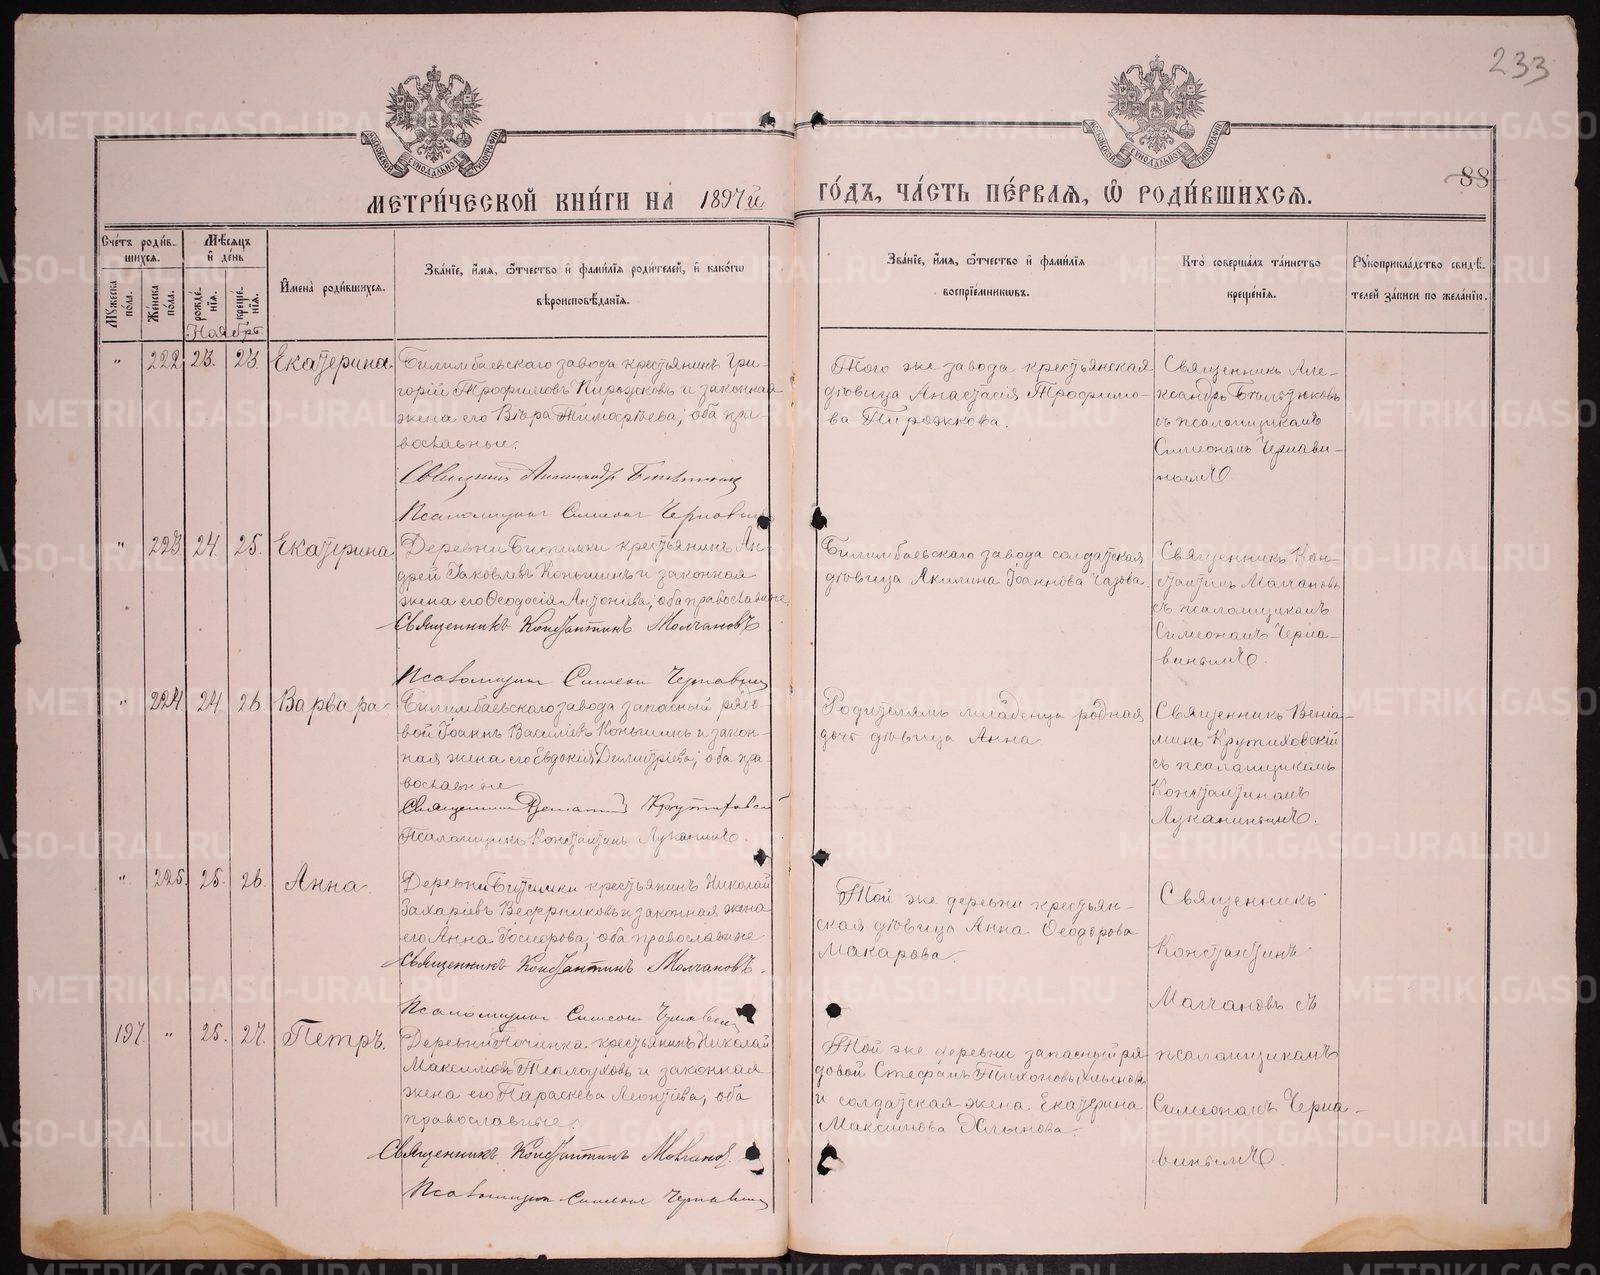 233
88
МЕТРИ́ЧЕСКОЙ КНИ́ГИ НА 1897й
ГО́ДЪ, ЧА́СТЬ ПЕ́РВАЯ, Ѡ РОДИ́ВШИХСЯ.
Сче́тъ роди́в-
шихся.
Мѣсяцъ
и де́нь
Мꙋжеска по́ла.
Же́нска по́ла.
рожде́-
нїя.
креще́-
нїя.
И҆мена̀ роди́вшихся.
Зва́нїе, и҆́мя, ѻ҆́тчество и҆ фами́лїя роди́телей, и҆ како́гѡ
вѣроисповѣ́данїя.
Зва́нїе, и҆́мя, ѻ҆́тчество и҆ фами́лїя
воспрїе́мникѡвъ.
Кто̀ соверша́лъ та́инство
креще́нїя.
Рꙋкоприкла́дство свидѣ́-
телей за́писи по жела́нїю.
Ноябрь.
" 222 23. 23. Екатерина
Билимбаевскаго завода крестьянинъ Гри-
горій Трофимовъ Пирожковъ и законная
жена его Вѣра Тимофѣева; оба пра-
вославные.
Священникъ Александръ
Псаломщикъ Симеонъ Чернавинъ
Того же завода крестьянская
дѣвица Анастасія Трофимо-
ва Пирожкова.
Священникъ Але-
ксандръ Бѣльтюковъ
съ псаломщикомъ
Симеономъ Чернави-
нымъ.
" 223. 24. 25. Екатерина
Деревни Битимки крестьянинъ Ан-
дрей Іаковлевъ Коньшинъ и законная
жена его Ѳеодосія Антоніева; оба православные.
Священникъ Константинъ Молчановъ
Псаломщикъ Симеонъ Чернавинъ
Билимбаевскаго завода солдатская
дѣвица Акилина Іоаннова Чазова
Священникъ Кон-
стантинъ Молчановъ
съ псаломщикомъ
Симеономъ Черна-
винымъ.
" 224 24. 26. Варвара
Билимбаевскаго завода запасный рядо-
вой Іоаннъ Василіевъ Коньшинъ и закон-
ная жена его Евдокія Димитріева; оба пра-
вославные
Священникъ Веніаминъ Крутиховскій
Псаломщикъ Константинъ Луканинъ.
Родителямъ младенца родная
дочь дѣвица Анна
Священникъ Веніа-
минъ Крутиховскій
съ псаломщикомъ
Константиномъ
Луканинымъ.
" 225. 25. 26. Анна
Деревни Битимки крестьянинъ Николай
Захаріевъ и законная жена
его Анна оба православные
Священникъ Константинъ Молчановъ.
Псаломщикъ Симеонъ Чернавинъ
Той же деревни крестьян-
ская дѣвица Анна Ѳеодорова
Макарова.
Священникъ
Константинъ
Молчановъ съ
псаломщикомъ
Симеономъ Черна-
винымъ.
197. " 25. 27. Петръ.
Деревни Починка крестьянинъ Николай
Максимовъ Теплоуховъ и законная
жена его Параскева Леонтіева, оба
православные.
Священникъ Константинъ Молчановъ.
Псаломщикъ Симеонъ Чернавинъ
Той же деревни запасный ря-
довой Стефанъ Тихоновъ Хлыновъ
и солдатская жена Екатерина
Максимова Хлынова.
METRIKI.GASO-URAL.RU